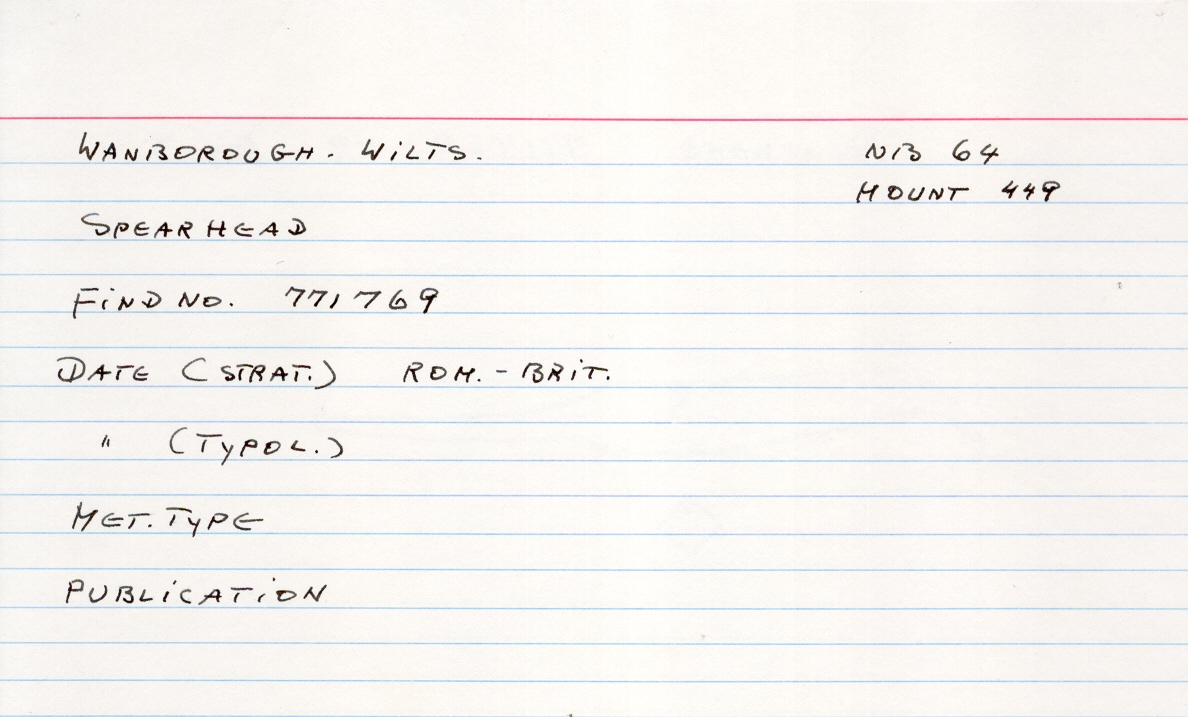 WANBOROUGH. WILTS. NB 64
MOUNT 449
SPEARHEAD
FIND NO. 771769
DATE (STRAT.) ROM.-BRIT.
" (TYPOL.)
MET. TYPE
PUBLICATION